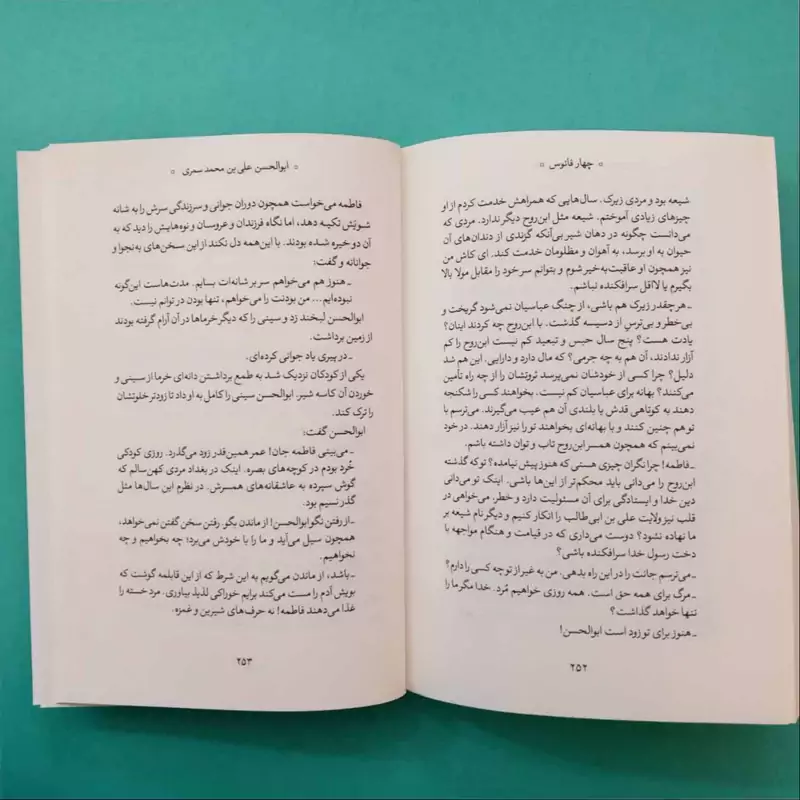 چهار فانوس
شیعه بود و مردی زیرک. سال‌هایی که همراهش خدمت کردم از او
چیزهای زیادی آموختم. شیعه مثل ابن‌روح دیگر ندارد. مردی که
می‌دانست چگونه در دهان شیر بی‌آنکه گزندی از دندان‌های آن
حیوان به او برسد، به آهوان و مظلومان خدمت کند. ای کاش من
نیز همچون او عاقبت‌به‌خیر شوم و بتوانم سر خود را مقابل مولا بالا
بگیرم یا لااقل سرافکنده نباشم.
ـ هر چقدر زیرک هم باشی، از چنگ عباسیان نمی‌شود گریخت و
بی‌خطر و بی‌ترس از دسیسه گذشت. با ابن‌روح چه کردند اینان؟
یادت هست؟ پنج سال حبس و تبعید کم نیست ابن‌روح را کم
آزار ندادند، آن هم به چه جرمی؟ که مال دارد و دارایی. این هم شد
دلیل؟ چرا کسی از خودشان نمی‌پرسد ثروتشان را از چه راه تأمین
می‌کنند؟ بهانه برای عباسیان کم نیست. بخواهند کسی را شکنجه
دهند به کوتاهی قدش یا بلندی آن هم عیب می‌گیرند. می‌ترسم با
تو هم چنین کنند و با بهانه‌ای بخواهند تو را نیز آزار دهند. در خود
نمی‌بینم که همچون همسر ابن‌روح تاب و توان داشته باشم.
ـ فاطمه! چرا نگران چیزی هستی که هنوز پیش نیامده؟ تو که گذشته
ابن‌روح را می‌دانی باید محکم‌تر از این‌ها باشی. اینک تو می‌دانی
دین خدا و ایستادگی برای آن مسئولیت دارد و خطر. می‌خواهی در
قلب نیز ولایت علی بن ابی‌طالب را انکار کنیم و دیگر نام شیعه بر
ما نهاده نشود؟ دوست می‌داری که در قیامت و هنگام مواجهه با
دخت رسول خدا سرافکنده باشی؟
ـ می‌ترسم جانت را در این راه بدهی. من به غیر از تو چه کسی را دارم؟
ـ مرگ برای همه حق است. همه روزی خواهیم مُرد. خدا مگر ما را
تنها خواهد گذاشت؟
ـ هنوز برای تو زود است ابوالحسن!
۲۵۲
ابوالحسن علی بن محمد سمری
فاطمه می‌خواست همچون دوران جوانی و سرزندگی سرش را به شانه
شویش تکیه دهد، اما نگاه فرزندان و عروسان و نوه‌هایش را دید که به
آن دو خیره شده بودند. با این‌همه دل نکند از این سخن‌های به‌نجوا و
جوانانه و گفت:
ـ هنوز هم می‌خواهم سر بر شانه‌ات بسایم. مدت‌هاست این‌گونه
نبوده‌ایم... من بودنت را می‌خواهم، تنها بودن در توانم نیست.
ابوالحسن لبخند زد و سینی را که دیگر خرماها در آن آرام گرفته بودند
از زمین برداشت.
ـ در پیری یاد جوانی کرده‌ای.
یکی از کودکان نزدیک شد به طمع برداشتن دانه‌ای خرما از سینی و
خوردن آن کاسه شیر. ابوالحسن سینی را کامل به او داد تا زودتر خلوتشان
را ترک کند.
ابوالحسن گفت:
ـ می‌بینی فاطمه جان! عمر همین‌قدر زود می‌گذرد. روزی کودکی
خُرد بودم در کوچه‌های بصره. اینک در بغداد مردی کهن‌سالم که
گوش سپرده به عاشقانه‌های همسرش. در نظرم این سال‌ها مثل
گذر نسیم بود.
ـ از رفتن نگو ابوالحسن! از ماندن بگو. رفتن سخن گفتن نمی‌خواهد،
همچون سیل می‌آید و ما را با خودش می‌برد؛ چه بخواهیم و چه
نخواهیم.
ـ باشد، از ماندن می‌گویم به این شرط که از این قابلمه گوشت که
بویش آدم را مست می‌کند برایم خوراکی لذیذ بیاوری. مرد خسته را
غذا می‌دهند فاطمه! نه حرف‌های شیرین و غمزه.
۲۵۳